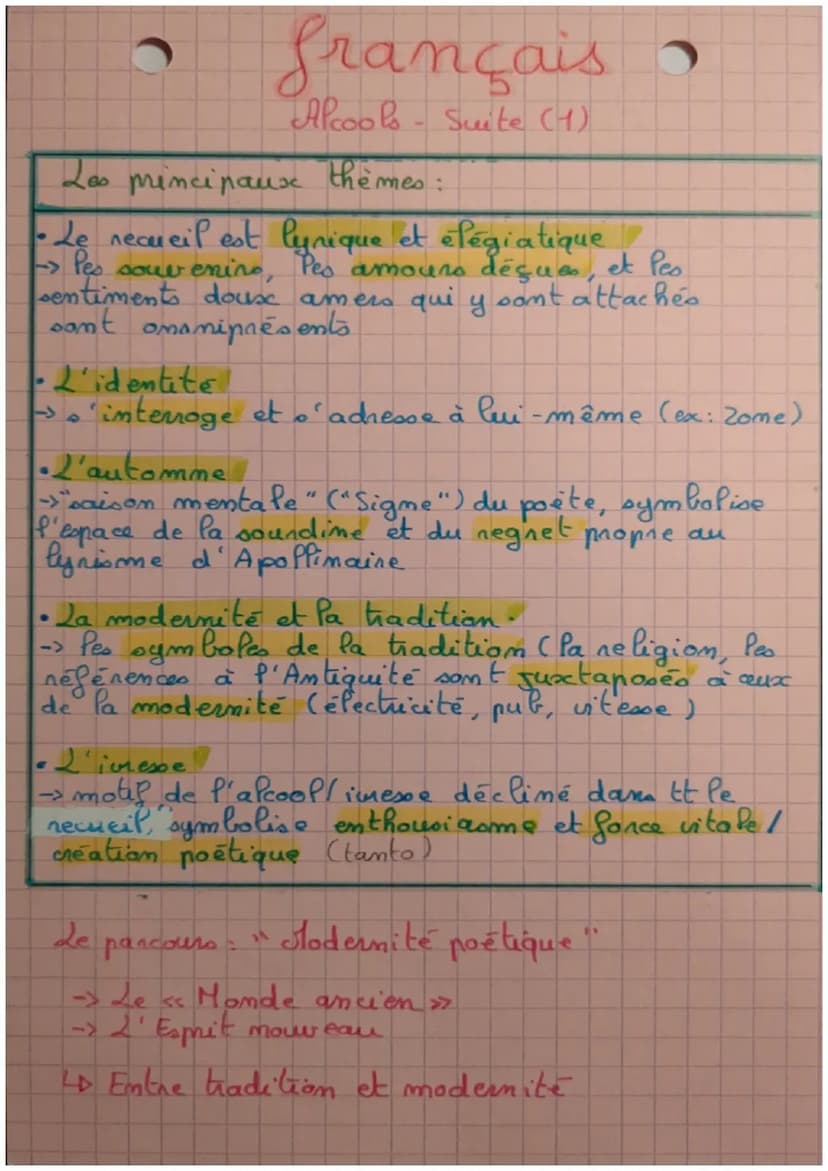 français
Alcools - Suite (1)
Les principaux thèmes :
• Le recueil est lyrique et élégiatique
-> les souvenirs, les amours déçues, et les
sentiments doux amers qui y sont attachés
sont omniprésents
• L'identité
-> s'interroge et s'adresse à lui-même (ex: Zone)
• L'automne
-> "saison mentale" ("Signe") du poète, symbolise
l'espace de la sourdine et du regret propre au
lyrisme d'Apollinaire
• La modernité et la tradition.
-> les symboles de la tradition (la religion, les
références à l'Antiquité sont juxtaposés à ceux
de la modernité (électricité, pub, vitesse)
• L'ivresse
-> motif de l'alcool/ivresse décliné dans tt le
recueil, symbolise enthousiasme et force vitale/
création poétique (tanto)
Le parcours : "Modernité poétique"
-> Le « Monde ancien »
-> L'Esprit nouveau
↳ Entre tradition et modernité